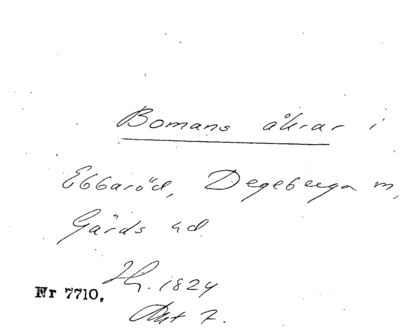 Bomans åkrar i
Ebbaröd, Degeberga m,
Gärds hd.
Hr. 1824
Nr 7710.
Akt 7.